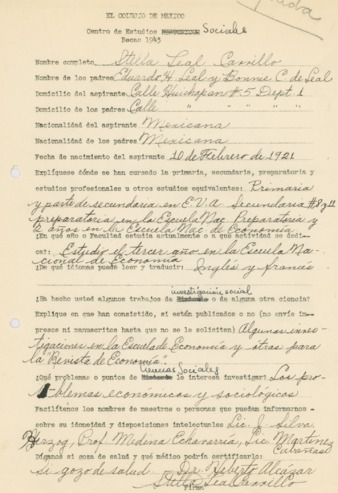 EL COLEGIO DE MEXICO
Centro de Estudios Sociales
Becas 1943
Nombre completo Stella Leal Carrillo
Nombre de los padres Eduardo H. Leal y Bonnie C. de Leal
Domicilio del aspirante Calle Huichapan #5 Dept 1
Domicilio de los padres Calle " " " "
Nacionalidad del aspirante Mexicana
Nacionalidad de los padres Mexicana
Fecha de nacimiento del aspirante 10 de Febrero de 1921
Explíquese dónde se han cursado la primaria, secundaria, preparatoria y
estudios profesionales u otros estudios equivalentes: Primaria
y parte de secundaria en E.U.A. Secundaria #8 y 11
preparatoria en la Escuela Nac. Preparatoria y
2 años en la Escuela Nac de Economía
¿En qué año o Facultad estudia actualmente o a qué actividad se dedi-
ca?: Estudio el tercer año en la Escuela Na-
cional de Economía
¿De qué idiomas puede leer y traducir: Inglés y francés
investigación social
¿Ha hecho usted algunos trabajos de Historia o de alguna otra ciencia?
Explique en que han consistido, si están publicados o no (no envíe impre-
sos ni manuscritos hasta que no se le soliciten) Algunas inves-
tigaciones en la Escuela de Economía y otras para
la "Revista de Economía".
Ciencias Sociales
¿Qué problemas o puntos de Historia le interesa investigar: Los pro-
blemas económicos y sociológicos
Facilítenos los nombres de maestros o personas que puedan informarnos
sobre su idoneidad y disposiciones intelectuales: Lic. J. Silva
Herzog, Prof. Medina Echavarría, Lic. Martínez
Díganos si goza de salud y qué médico podría certificarlo:
Si gozo de salud Dr. Heberto Alcázar
Stella Leal Carrillo
Firma